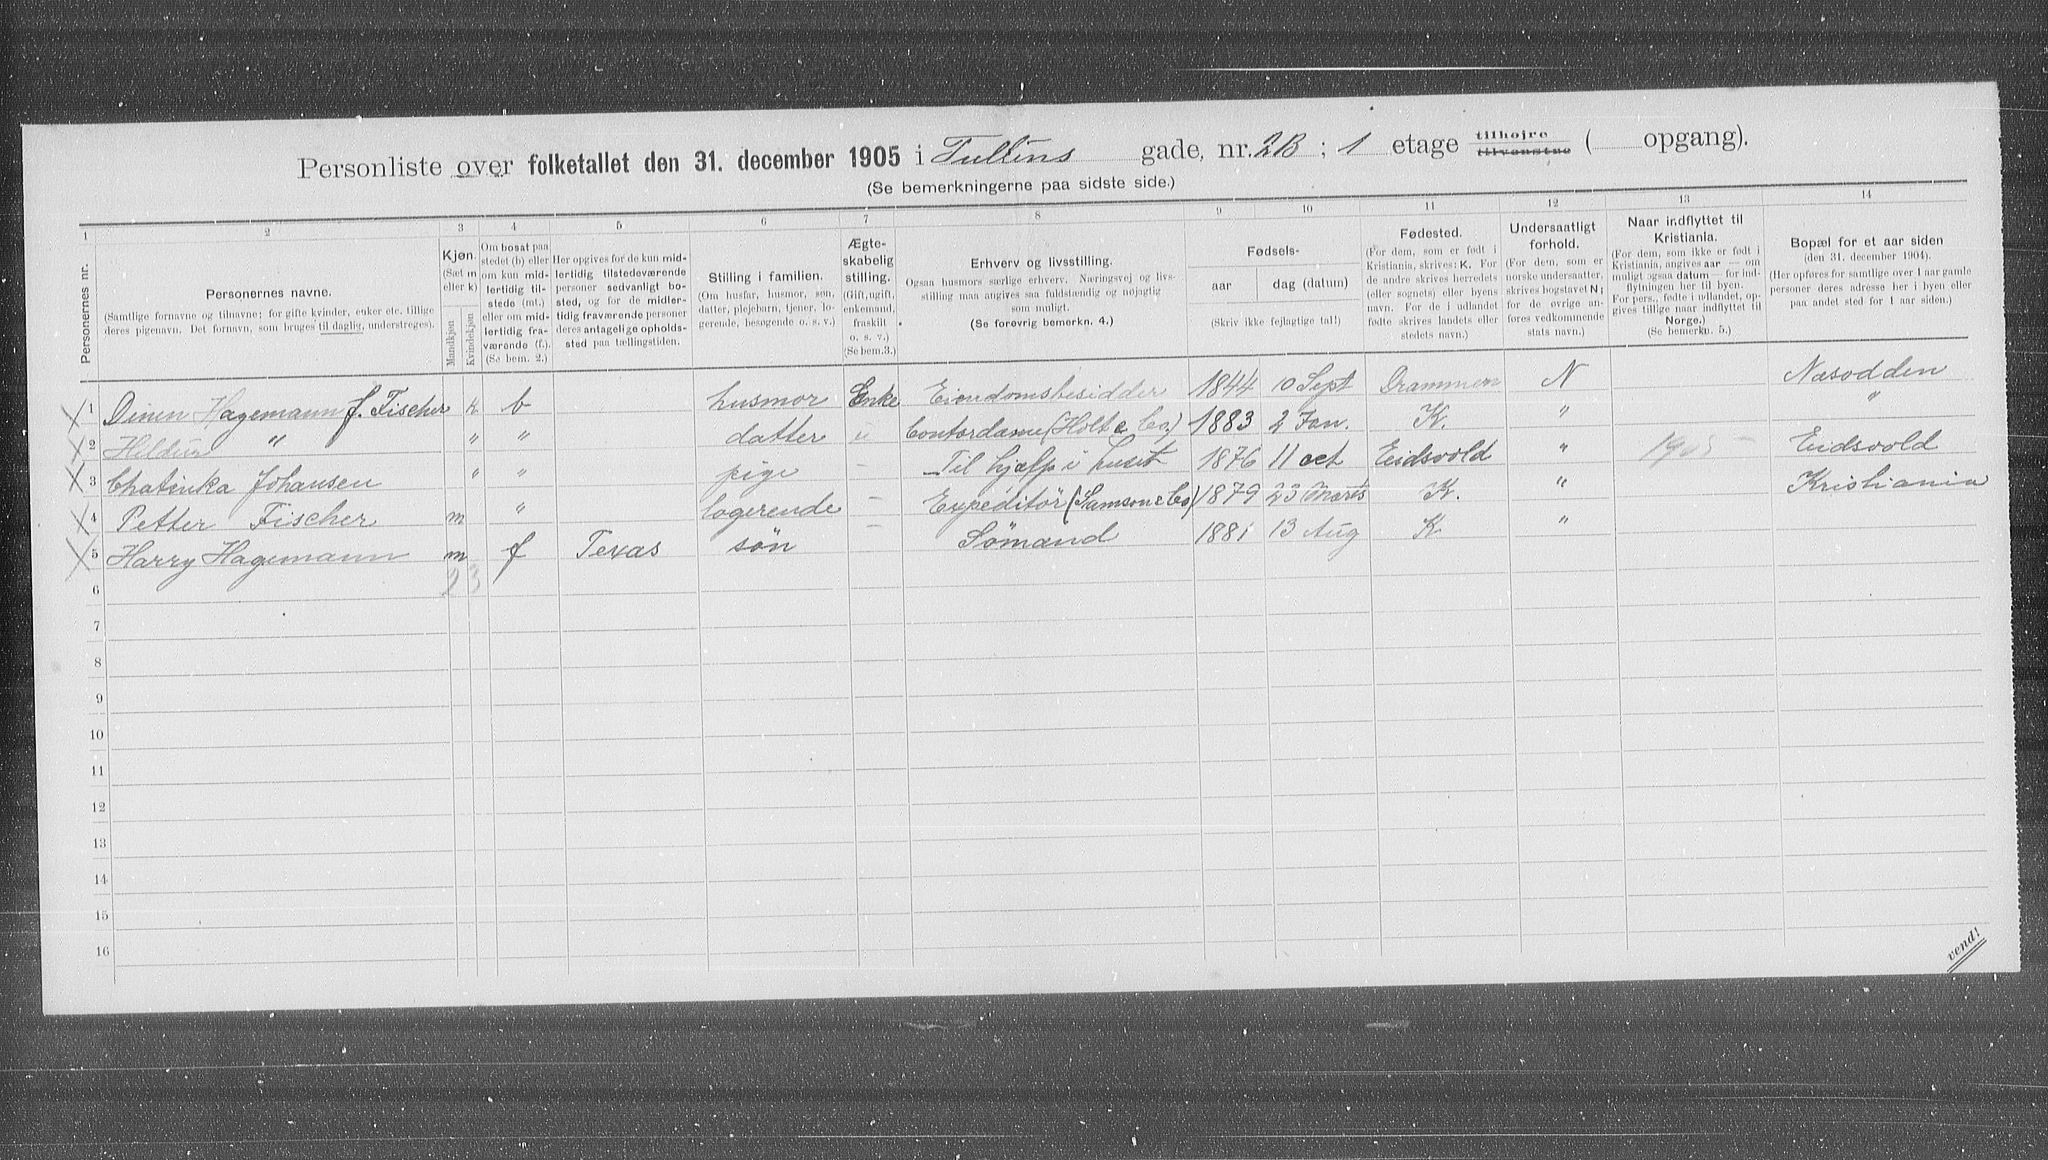 Personliste over folketallet den 31. december 1905 i Tullins gade, nr. 2B ; 1 etage tilhøjre tilvenstre ( opgang).
(Se bemerkningerne paa sidste side.)
1 2 3 4 5 6 7 8 9 10 11 12 13 14
Personernes nr.
Personernes navne.
(Samtlige fornavne og tilnavne; for gifte kvinder, enker etc. tillige
deres pigenavn. Det fornavn, som bruges til daglig, understreges).
Kjøn.
(Sæt m
eller k)
Mandkjøn
Kvindekjøn
Om bosat paa
stedet (b) eller
om kun mid-
lertidig til-
stede (mt.)
eller om mid-
lertidig fra-
værende (f.).
(Se bem. 2.)
Her opgives for de kun mid-
lertidig tilstedeværende
personer sedvanligt bo-
sted, og for de midler-
tidig fraværende personer
deres antagelige opholds-
sted paa tællingstiden.
Stilling i familien.
(Om husfar, husmor, søn,
datter, plejebarn, tjener, lo-
gerende, besøgende o. s. v.)
Ægte-
skabelig
stilling.
(Gift, ugift,
enkemand,
fraskilt
o. s. v.)
(Se bem.3.)
Erhverv og livsstilling.
Ogsaa husmors særlige erhverv. Næringsvej og livs-
stilling maa angives saa fuldstændig og nøjagtig
som muligt.
(Se forøvrig bemerkn. 4.)
Fødsels-
aar dag (datum)
(Skriv ikke fejlagtige tal!)
Fødested.
(For dem, som er født i
Kristiania, skrives: K. For
de andre skrives herredets
(eller sognets) eller byens
navn. For de i udlandet
fødte skrives landets eller
stedets navn.)
Undersaatligt
forhold.
(For dem, som er
norske undersaatter,
skrives bogstavet N;
for de øvrige an-
føres vedkommende
stats navn.)
Naar indflyttet til
Kristiania.
(For dem, som ikke er født i
Kristiania, angives aar — om
muligt ogsaa datum — for ind-
flytningen her til byen.
For pers., fødte i udlandet, op-
gives tillige naar indflyttet til
Norge.)
(Se bemerkn. 5.)
Bopæl for et aar siden
(den 31. december 1904).
(Her opføres for samtlige over 1 aar gamle
personer deres adresse her i byen eller
paa andet sted for 1 aar siden.)
1 Dinen Hagemann f. Fischer k b husmor Enke Eiendomsbesidder 1844 10 Sept Drammen N Næsodden
2 Hildur " " " datter u Contordame (Holt & Co.) 1883 2 Jan. K. " "
3 Chatinka Johansen " " pige - Til hjælp i huset 1876 11 oct Eidsvold " 1905 - Eidsvold
4 Petter Fischer m " logerende - Expeditör (Samson & Co) 1879 23 Marts K. " Kristiania
5 Harry Hagemann m f Texas søn - Sömand 1881 13 Aug K "
2 3
6
7
8
9
10
11
12
13
14
15
16
vend!